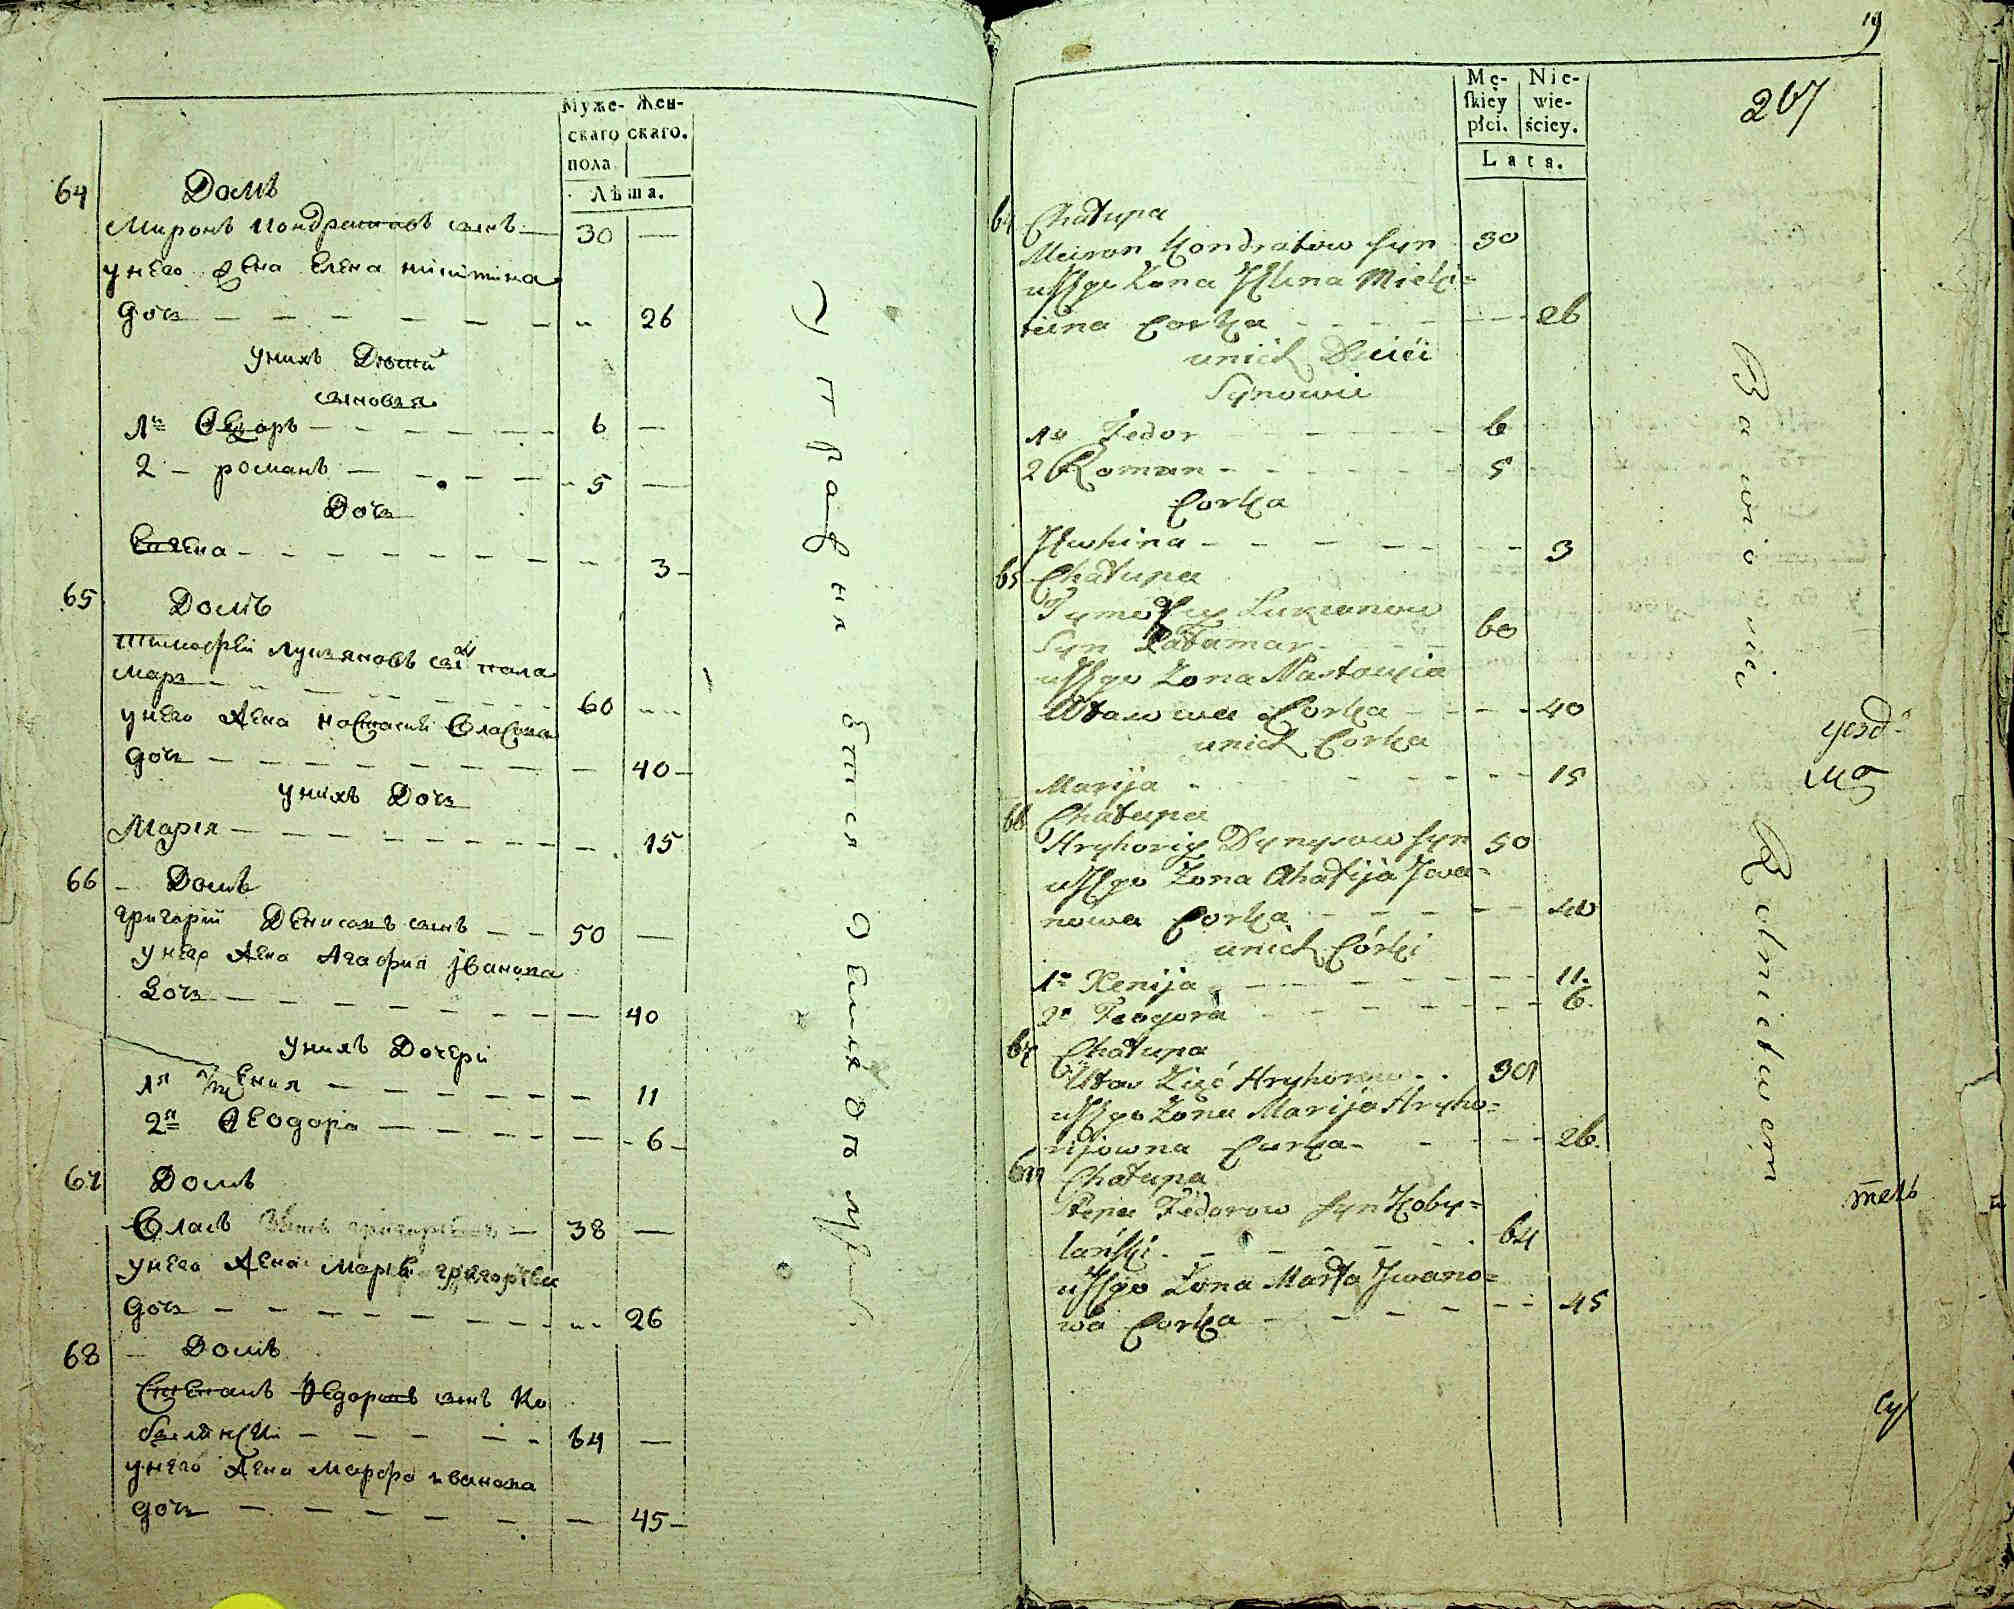 Муже- Жен-
скаго скаго.
пола
Лѣта.
64 Домъ
Миронъ Кондратовъ сынъ — 30 —
унего жена Елена никитина
дочь — — — — — — — „ 26
унихъ Дѣти
сыновья
1й Ѳедоръ — — — — — — 6 —
2 – романъ — — — — — „ 5 —
Дочь
Евгена — — — — — — — „ 3 –
65 Домъ
Тимофей лукяновъ сынъ пала
марь — — — — — — 60 „ „
унего жена настасия Власова
дочь — — — — — — — — 40 –
унихъ Дочь
Мария — — — — — — — — 15
66 – Домъ
григорий Денисовъ сынъ — — 50 —
унего жена Агафия iванова
Дочь — — — — — — — 40
унихъ Дочери
1я ксения — — — — — — — 11
2я Ѳеодора — — — — — — 6 –
67 Домъ
Власъ григорьевъ — 38 —
унего жена марья григорьева
дочь — — — — — — „ 26
68 – Домъ
Степанъ Ѳедоровъ сынъ Ко
былянски — — — — — 64 —
унего жена марфа иванова
дочь — — — — — — — 45 –
Упражняются Землѣ
19
267
Mę- Nie-
ſkiey wie-
płci. ściey.
Lata.
64 Chałupa
Meiron Kondratow syn 30
u Niego Zona Helina Miki-
tina Corka — — — — 26
unich Dzieci
Synowie
1y Fedor — — — — 6
2 Roman — — — — 5
Corka
Jewhina — — — — — 3
65 Chałupa
Tymofiey Lukianow
Syn Pałamar — — 60
u Niego Zona Nastazia
Ułasowa Corka — — — 40
unich Corka
Marija — — — — — 15
66 Chałupa
Hryhoriy Dynysow syn 50
u Niego Zona Ahafija Jwa-
nowa Corka — — — — 40
unich Córki
1a Xenija — — — — — 11.
2a Teodora — — — — — 6.
67 Chałupa
Ułas Hryhorow . . 38
u Niego Zona Marija Hryho-
rijowna Curka — — — 26.
68 Chałupa
Stepan Fedorow syn Koby-
lański — — — — — 64
u Niego Zona Marta Jwano-
wa Corka — — — — — 45
Bawią się Rolnictwem
уезд-
тель
су